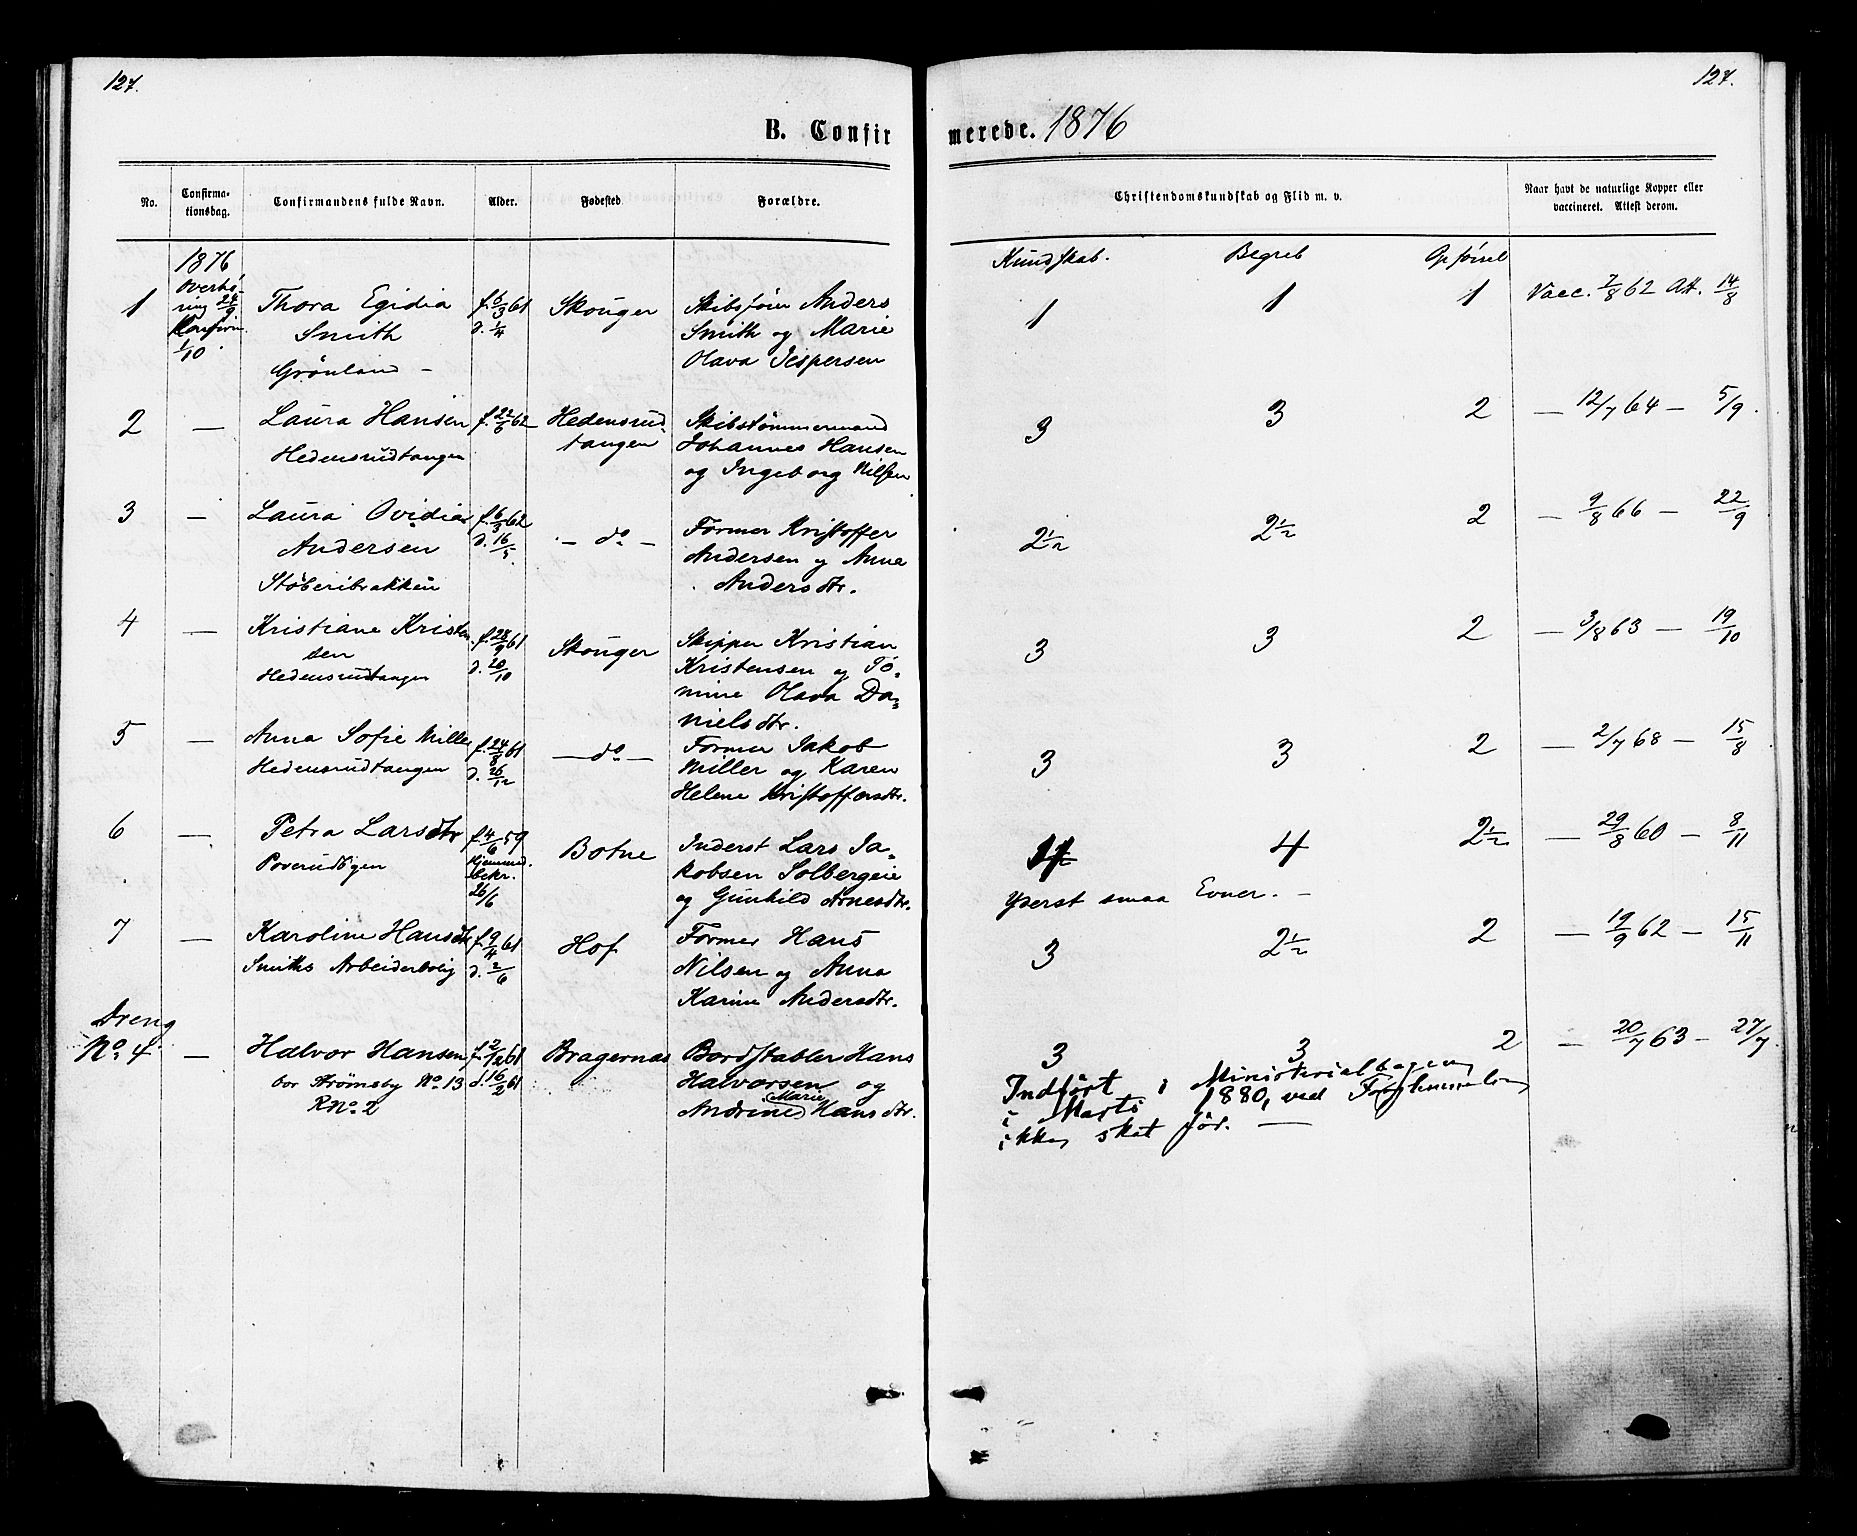 127.
127.
B. Confir
merede. 1876
No.
Confirma-
tionsdag.
Confirmandens fulde Navn.
Alder.
Fødested
Forældre.
Christendomskundskab og Flid m. v.
Naar havt de naturlige Kopper eller
vaccineret. Attest derom.
1876
Overhø-
ring 24/9
Konfirm.
1/10
Kundskab.
Begreb
Opførsel
1
Thora Egidia
Smith
Grønland –
f. 6/3 61
d. 1/4
Skouger
Skibsfører Anders
Smith og Marie
Olava Jespersen
1
1
1
Vacc. 7/8 62 Att. 14/8
2
—
Laura Hansen
Hedensrudtangen
f. 22/6 62
Hedensrud-
tangen
Skibstømmermand
Johannes Hansen
og Ingeborg Nilsen
3
3
2
— 12/7 64 — 5/9.
3
—
Laura Ovidia
Andersen
Støberibrakken
f. 6/3 62
d. 16/5.
— do —
Former Kristoffer
Andersen og Anna
Andersdtr.
2 1/2
2 1/2
2
— 9/8 66 — 22/9
4
—
Kristiane Kristen
sen
Hedensrudtangen
f. 28/9 61
d. 20/10
Skouger
Skipper Kristian
Kristensen og To-
mine Olava Da-
nielsdtr.
3
3
2
— 3/8 63 — 19/10
5
—
Anna Sofie Miller
Hedensrudtangen
f. 24/8 61
d. 26/12
— do —
Former Jakob
Miller og Karen
Helene Kristoffersdtr.
3
3
2
— 2/7 68 — 15/8
6
—
Petra Larsdtr
Poverudbyen
f. 4/6 59
Hjemmed.
bekr.
26/6
Botne
Inderst Lars Ja-
kobsen Solbergeie
og Gunhild Arnesdtr.
4
2 1/2
— 29/8 60 — 8/11
Yderst smaa Evner. –
7
—
Karoline Hansdtr
Smiths Arbeiderbolig
f. 9/4 61
d. 2/6
Hof
Former Hans
Nilsen og Anna
Karine Andersdtr.
3
2 1/2
2
— 19/9 62 — 15/11
Dreng
No. 4
—
Halvor Hansen
bor Strømsby No. 13
RNo. 2
f. 2/12 61
d. 16/2 61
Bragernæs
Bordstabler Hans
Halvorsen og
Marie
Andrine Hansdtr.
3
3
2
— 20/7 63 — 27/7.
Indført i Ministerialbogen
i Marts 1880, ved Forglemmelse
ikke sket før. —